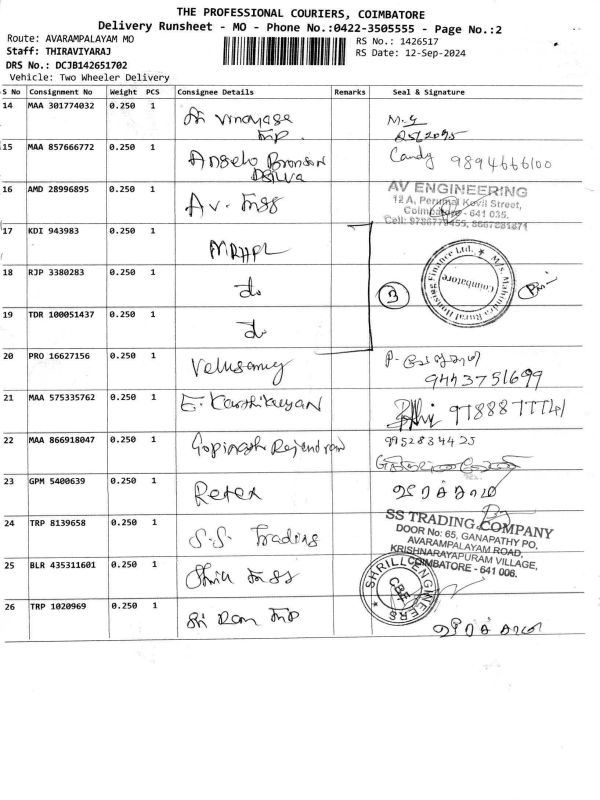 THE PROFESSIONAL COURIERS, COIMBATORE
Delivery Runsheet - MO - Phone No.:0422-3505555 - Page No.:2
Route: AVARAMPALAYAM MO
RS No.: 1426517
Staff: THIRAVIYARAJ
RS Date: 12-Sep-2024
DRS No.: DCJB142651702
Vehicle: Two Wheeler Delivery
S No Consignment No Weight PCS Consignee Details Remarks Seal & Signature
14 MAA 301774032 0.250 1 Sri Vinayaga
15 MAA 857666772 0.250 1 Angelo Bronson Candy 9894666100
16 AMD 28996895 0.250 1 Av. Engg
AV ENGINEERING
12 A, Perumal Kovil Street,
Coimbatore - 641 035.
17 KDI 943983 0.250 1 MRHFL
M/s. Mahindra Rural Housing Finance Ltd. ★
Coimbatore
18 RJP 3380283 0.250 1 do 3
19 TDR 100051437 0.250 1 do
20 PRO 16627156 0.250 1 Velusamy
9443751699
21 MAA 575335762 0.250 1 E. Karthikeyan
22 MAA 866918047 0.250 1 Gopinath Rajendran 9952834425
23 GPM 5400639 0.250 1 Retex
24 TRP 8139658 0.250 1 S.S. Trading
SS TRADING COMPANY
DOOR No: 65, GANAPATHY PO,
AVARAMPALAYAM ROAD,
KRISHNARAYAPURAM VILLAGE,
COIMBATORE - 641 006.
25 BLR 435311601 0.250 1 Shrill Engg
SHRILL ENGINEERS ★
CBE
26 TRP 1020969 0.250 1 Sri Ram